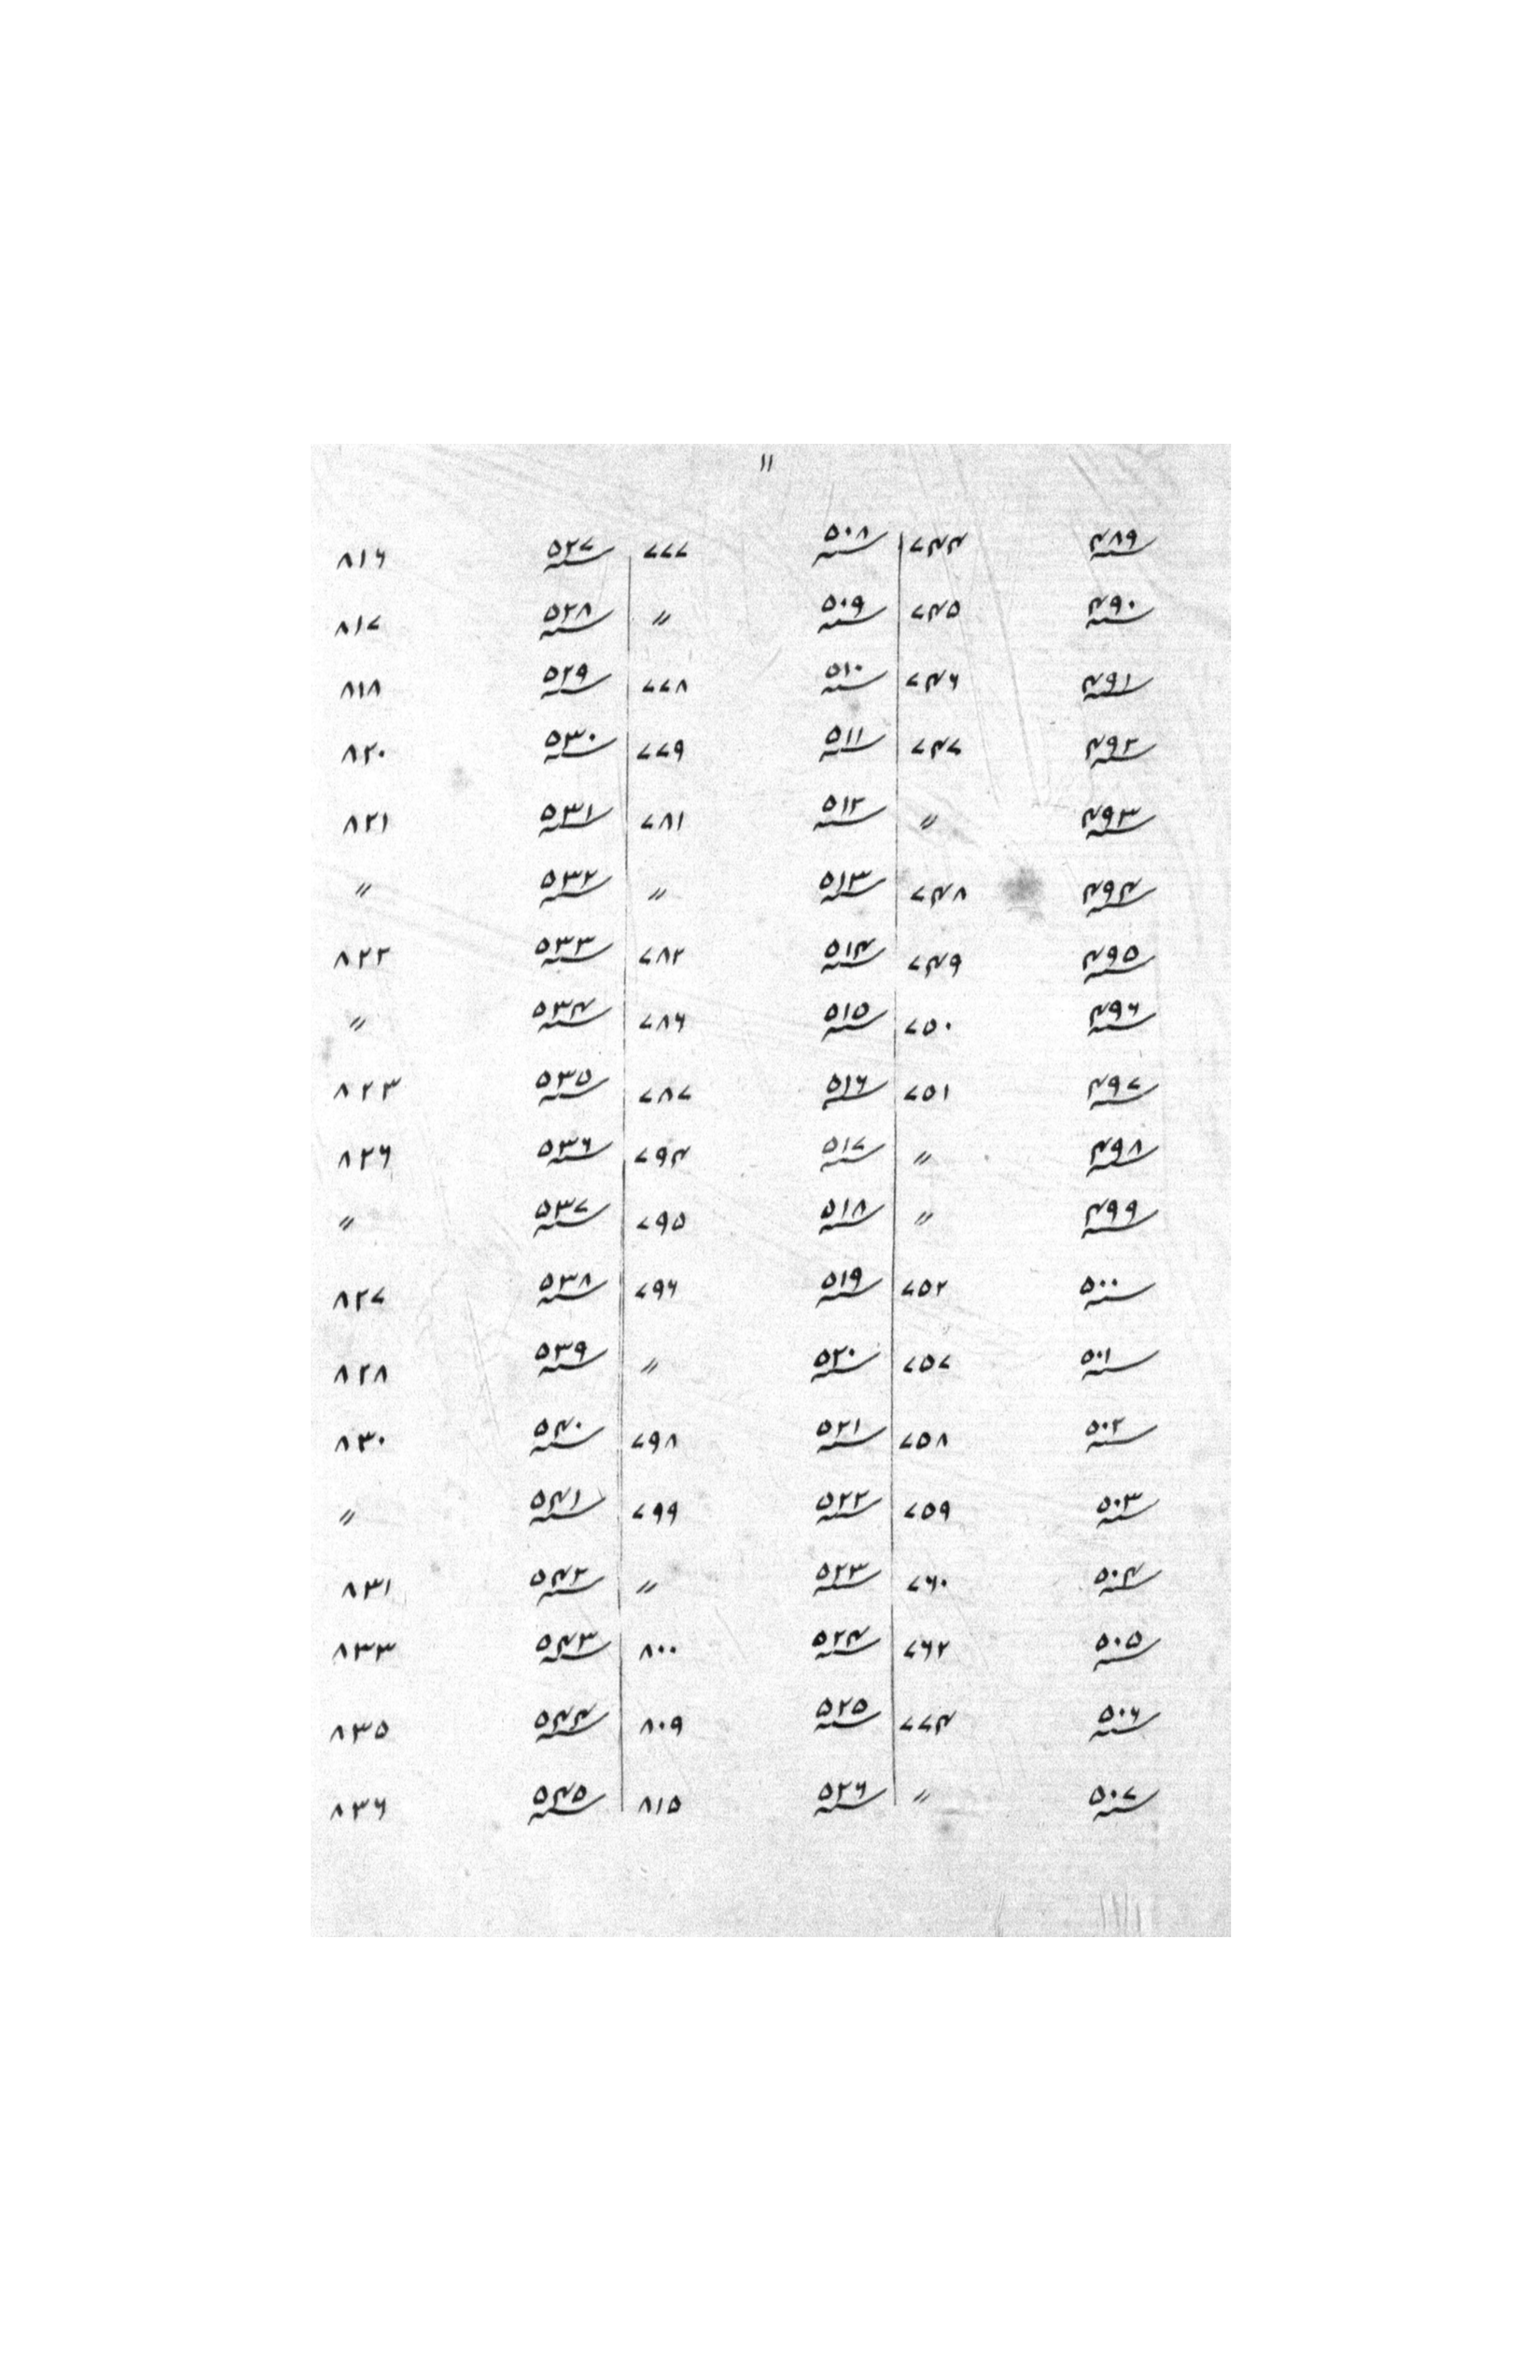 ١١
سنه ٤٨٩ ٧٤٤ سنه ٥٠٨ ٧٧٧ سنه ٥٢٧ ٨١٦
سنه ٤٩٠ ٧٤٥ سنه ٥٠٩〃 سنه ٥٢٨ ٨١٧
سنه ٤٩١ ٧٤٦ سنه ٥١٠ ٧٧٨ سنه ٥٢٩ ٨١٨
سنه ٤٩٢ ٧٤٧ سنه ٥١١ ٧٧٩ سنه ٥٣٠ ٨٢٠
سنه ٤٩٣ 〃 سنه ٥١٢ ٧٨١ سنه ٥٣١ ٨٢١
سنه ٤٩٤ ٧٤٨ سنه ٥١٣ 〃 سنه ٥٣٢ 〃
سنه ٤٩٥ ٧٤٩ سنه ٥١٤ ٧٨٢ سنه ٥٣٣ ٨٢٢
سنه ٤٩٦ ٧٥٠ سنه ٥١٥ ٧٨٦ سنه ٥٣٤ 〃
سنه ٤٩٧ ٧٥١ سنه ٥١٦ ٧٨٧ سنه ٥٣٥ ٨٢٣
سنه ٤٩٨ 〃 سنه ٥١٧ ٧٩٤ سنه ٥٣٦ ٨٢٦
سنه ٤٩٩ 〃 سنه ٥١٨ ٧٩٥ سنه ٥٣٧ 〃
سنه ٥٠٠ ٧٥٢ سنه ٥١٩ ٧٩٦ سنه ٥٣٨ ٨٢٧
سنه ٥٠١ ٧٥٧ سنه ٥٢٠ 〃 سنه ٥٣٩ ٨٢٨
سنه ٥٠٢ ٧٥٨ سنه ٥٢١ ٧٩٨ سنه ٥٤٠ ٨٣٠
سنه ٥٠٣ ٧٥٩ سنه ٥٢٢ ٧٩٩ سنه ٥٤١ 〃
سنه ٥٠٤ ٧٦٠ سنه ٥٢٣ 〃 سنه ٥٤٢ ٨٣١
سنه ٥٠٥ ٧٦٢ سنه ٥٢٤ ٨٠٠ سنه ٥٤٣ ٨٣٣
سنه ٥٠٦ ٧٧٤ سنه ٥٢٥ ٨٠٩ سنه ٥٤٤ ٨٣٥
سنه ٥٠٧ 〃 سنه ٥٢٦ ٨١٥ سنه ٥٤٥ ٨٣٦